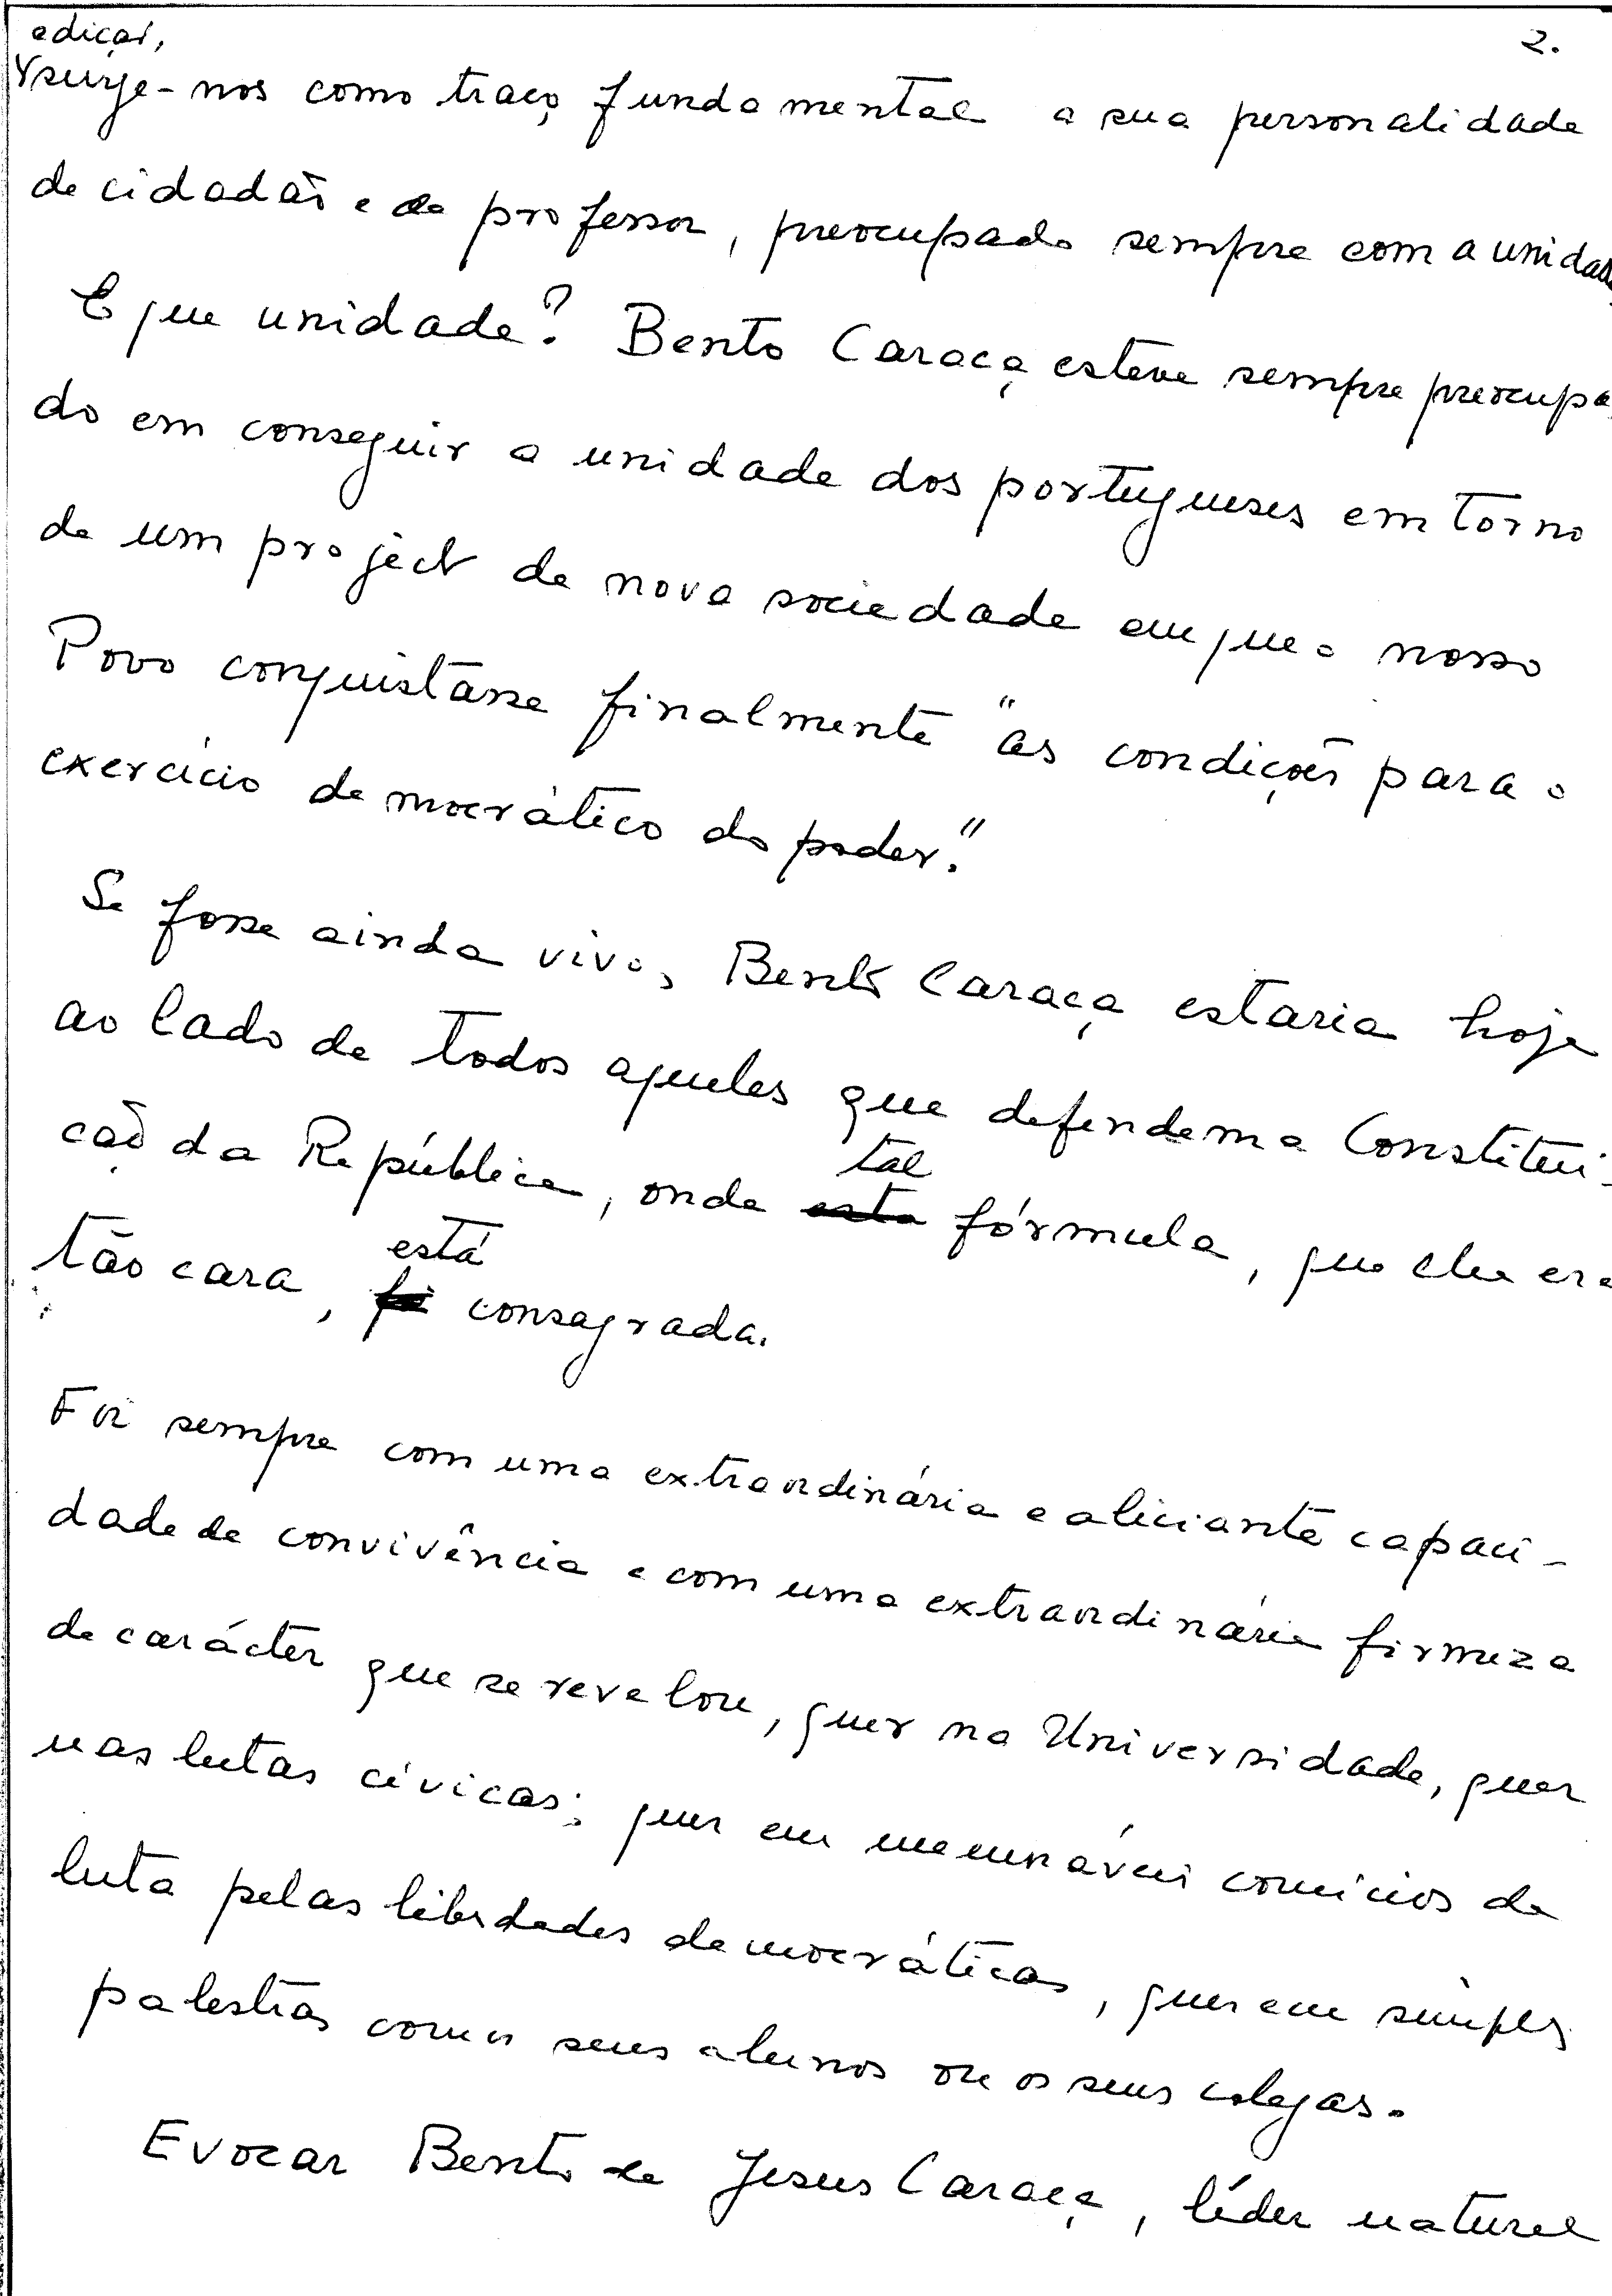 edição,
2.
surge-nos como traço fundamental a sua personalidade
de cidadão e de professor, preocupado sempre com a unidade
E que unidade? Bento Caraça esteve sempre preocupa
do em conseguir a unidade dos portugueses em torno
de um project de nova sociedade em que o nosso
Povo conquistasse finalmente "as condições para o
exercício democrático do poder."
Se fosse ainda vivo, Bento Caraça estaria hoje
ao lado de todos aqueles que defendem a Constitui-
ção da República, onde esta tal fórmula, que lhe era
tão cara, foi está consagrada.
Foi sempre com uma extraordinária e aliciante capaci-
dade de convivência e com uma extraordinária firmeza
de carácter que se revelou, quer na Universidade, quer
nas lutas cívicas; quer em memoráveis comícios de
luta pelas liberdades democráticas, quer em simples
palestras com os seus alunos ou os seus colegas.
Evocar Bento de Jesus Caraça, líder natural